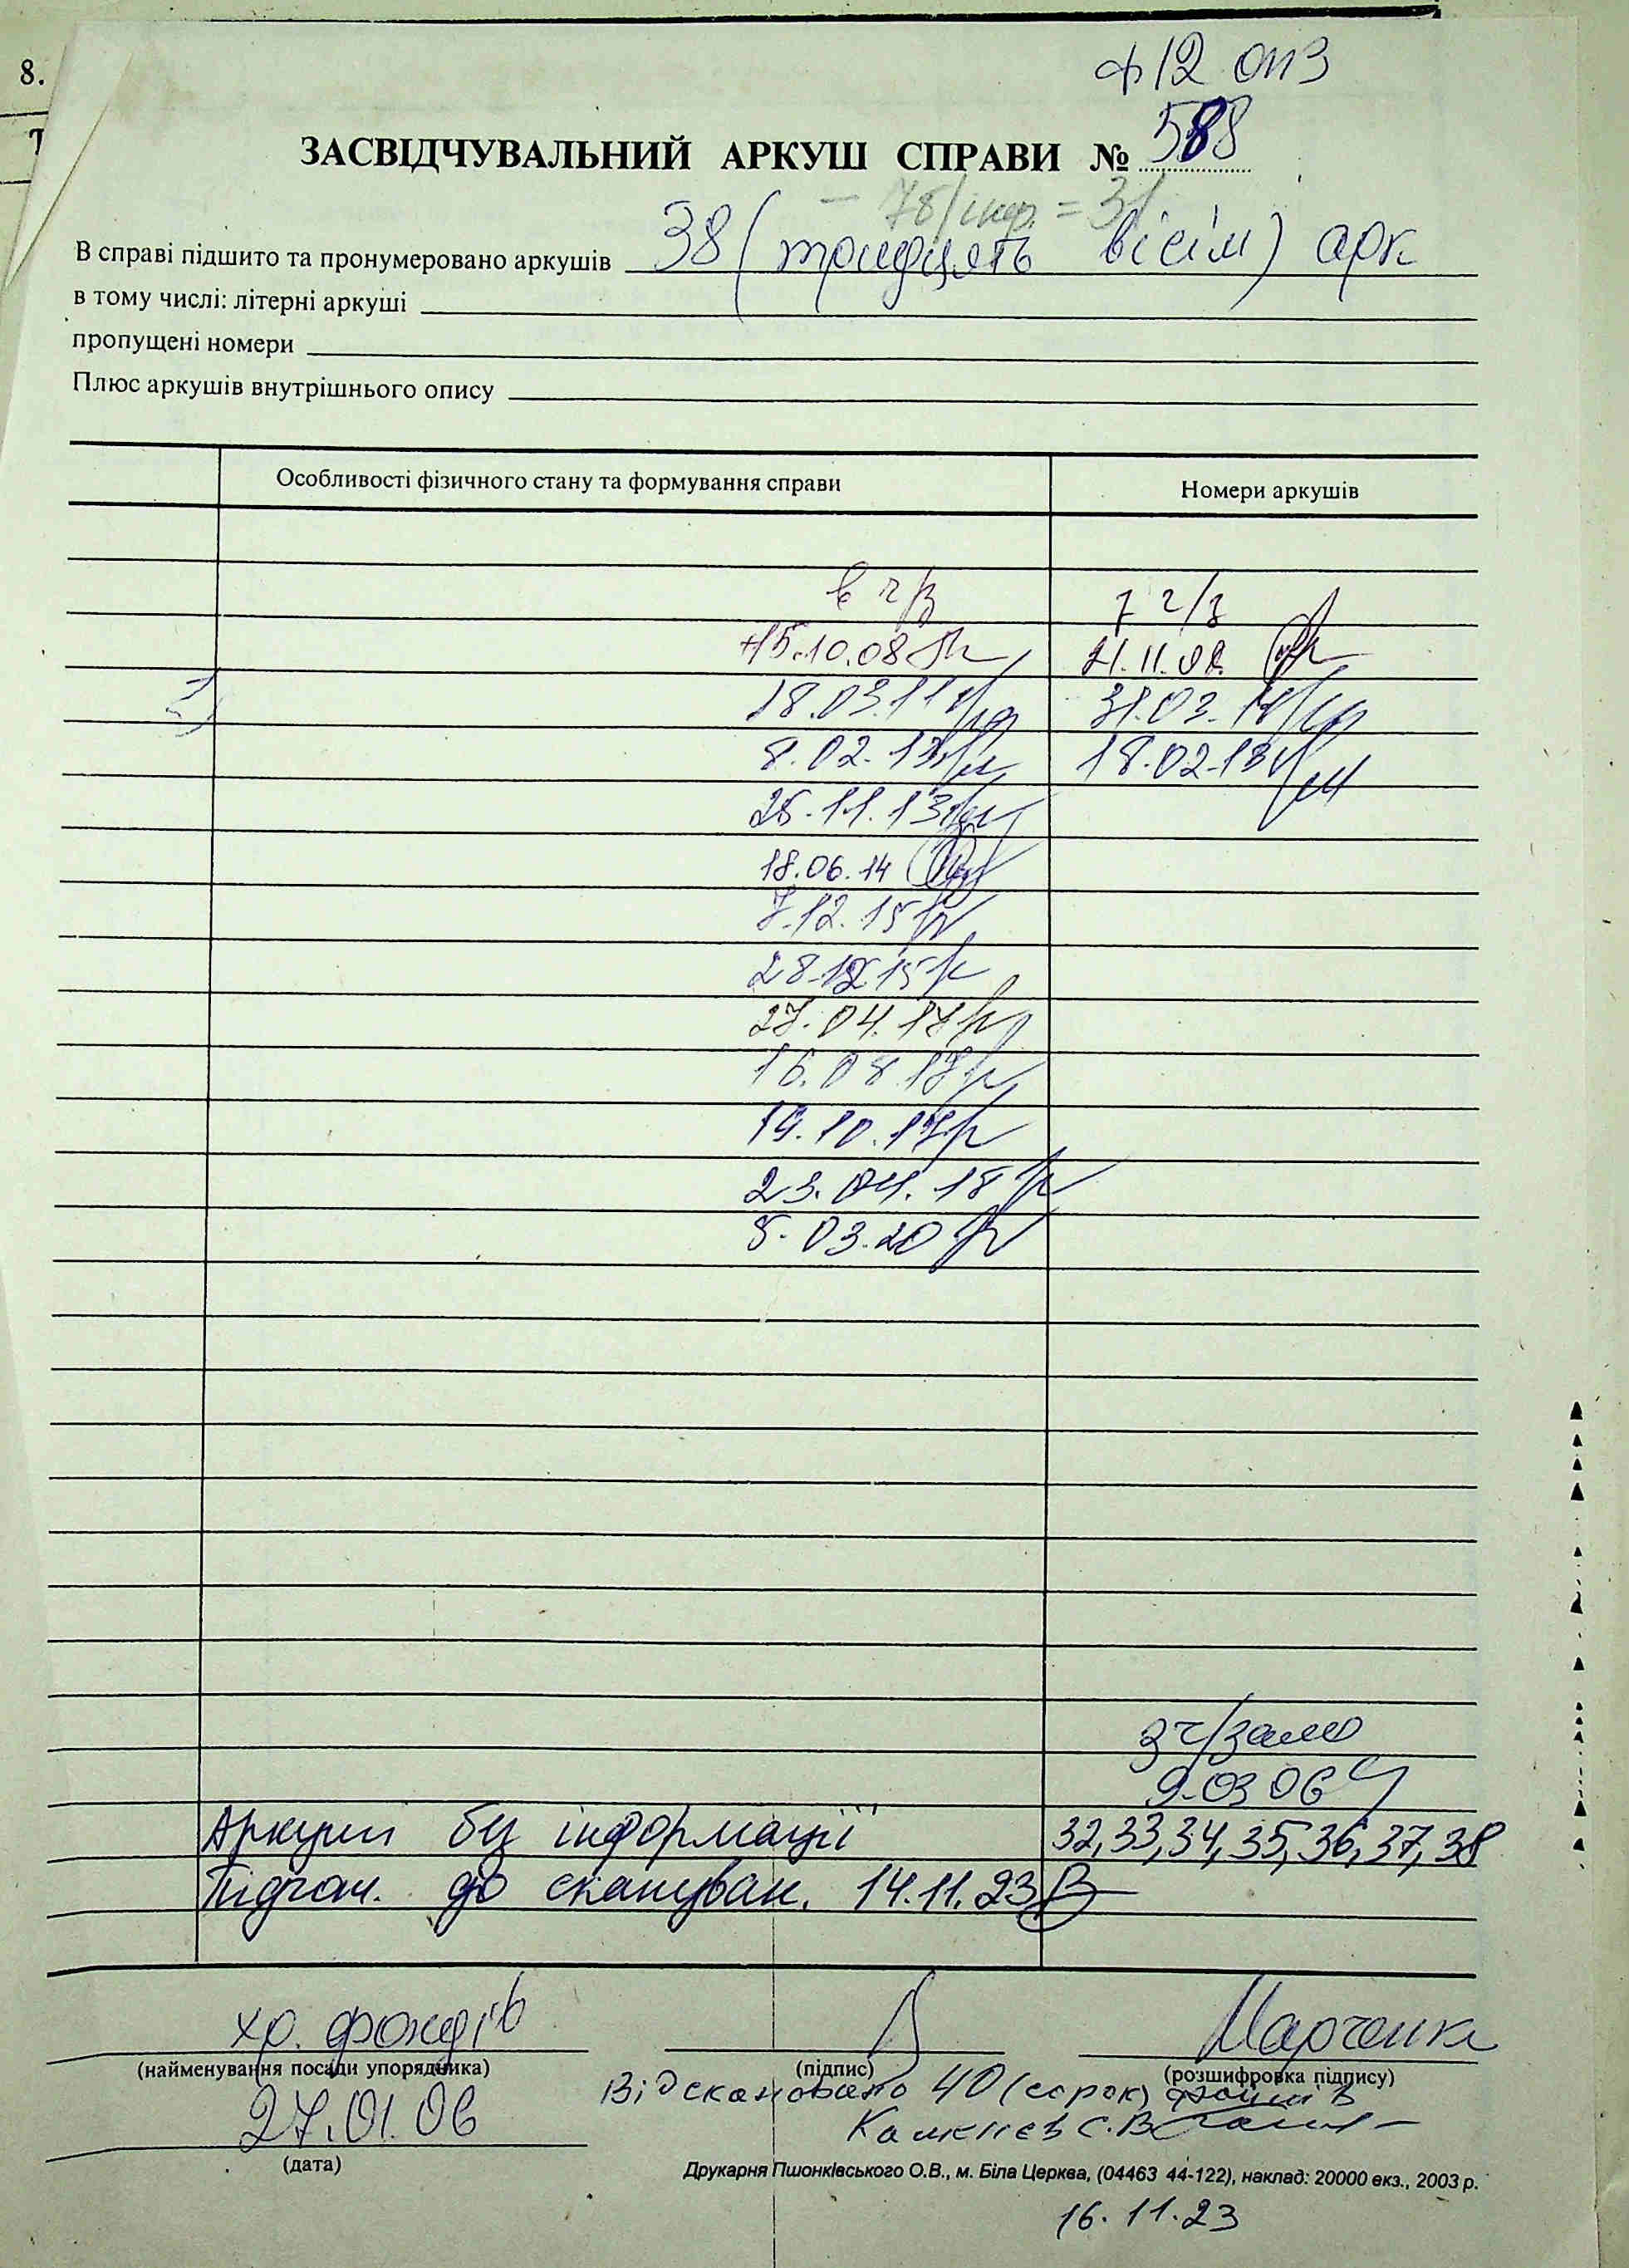 8.
ф12 оп3
ЗАСВІДЧУВАЛЬНИЙ АРКУШ СПРАВИ № 588
В справі підшито та пронумеровано аркушів 38 (тридцять вісім) арк
в тому числі: літерні аркуші
пропущені номери
Плюс аркушів внутрішнього опису
Особливості фізичного стану та формування справи Номери аркушів
в ч/з з ч/з
15.10.08 21.11.08
18.03.11 31.03.11
8.02.13 18.02.13
25.11.13
18.06.14
7.12.15
28.12.15
27.04.17
16.08.17
19.10.17
23.04.18
5.03.20
з ч/залю
9.03 06
Аркуші без інформації 32, 33, 34, 35, 36, 37, 38
Підгот. до скануван. 14.11.23
хр. фондів Марченко
(найменування посади упорядника) (підпис) (розшифровка підпису)
Відскановано 40 (сорок) файлів
27.01.06 Каменєв С.В.
(дата)
Друкарня Пшонківського О.В., м. Біла Церква, (04463 44-122), наклад: 20000 екз., 2003 р.
16.11.23